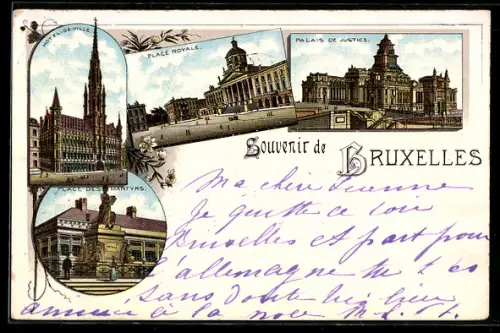 HOTEL-DE-VILLE.
PLACE ROYALE.
PALAIS DE JUSTICE.
Souvenir de BRUXELLES
PLACE DES MARTYRS.
Ma chère Jeanne
Je quitte ce soir
Bruxelles et part pour
l'allemagne
sans doute bien
à la noce